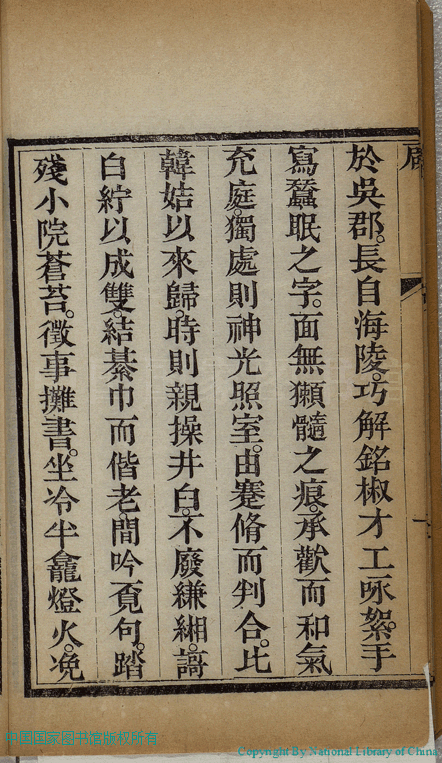 於吳郡。長自海陵。巧解銘椒才工咏絮。手
寫蠶眠之字。面無獺髓之痕。承歡而和氣
充庭。獨處則神光照室。由蹇脩而判合。比
韓姞以來歸。時則親操井臼。不廢縑緗。謌
白紵以成雙。結綦巾而偕老。閒吟覔句。踏
殘小院蒼苔。徵事攤書。坐冷半龕燈火。凂
中国国家图书馆版权所有
Copyright By National Library of China